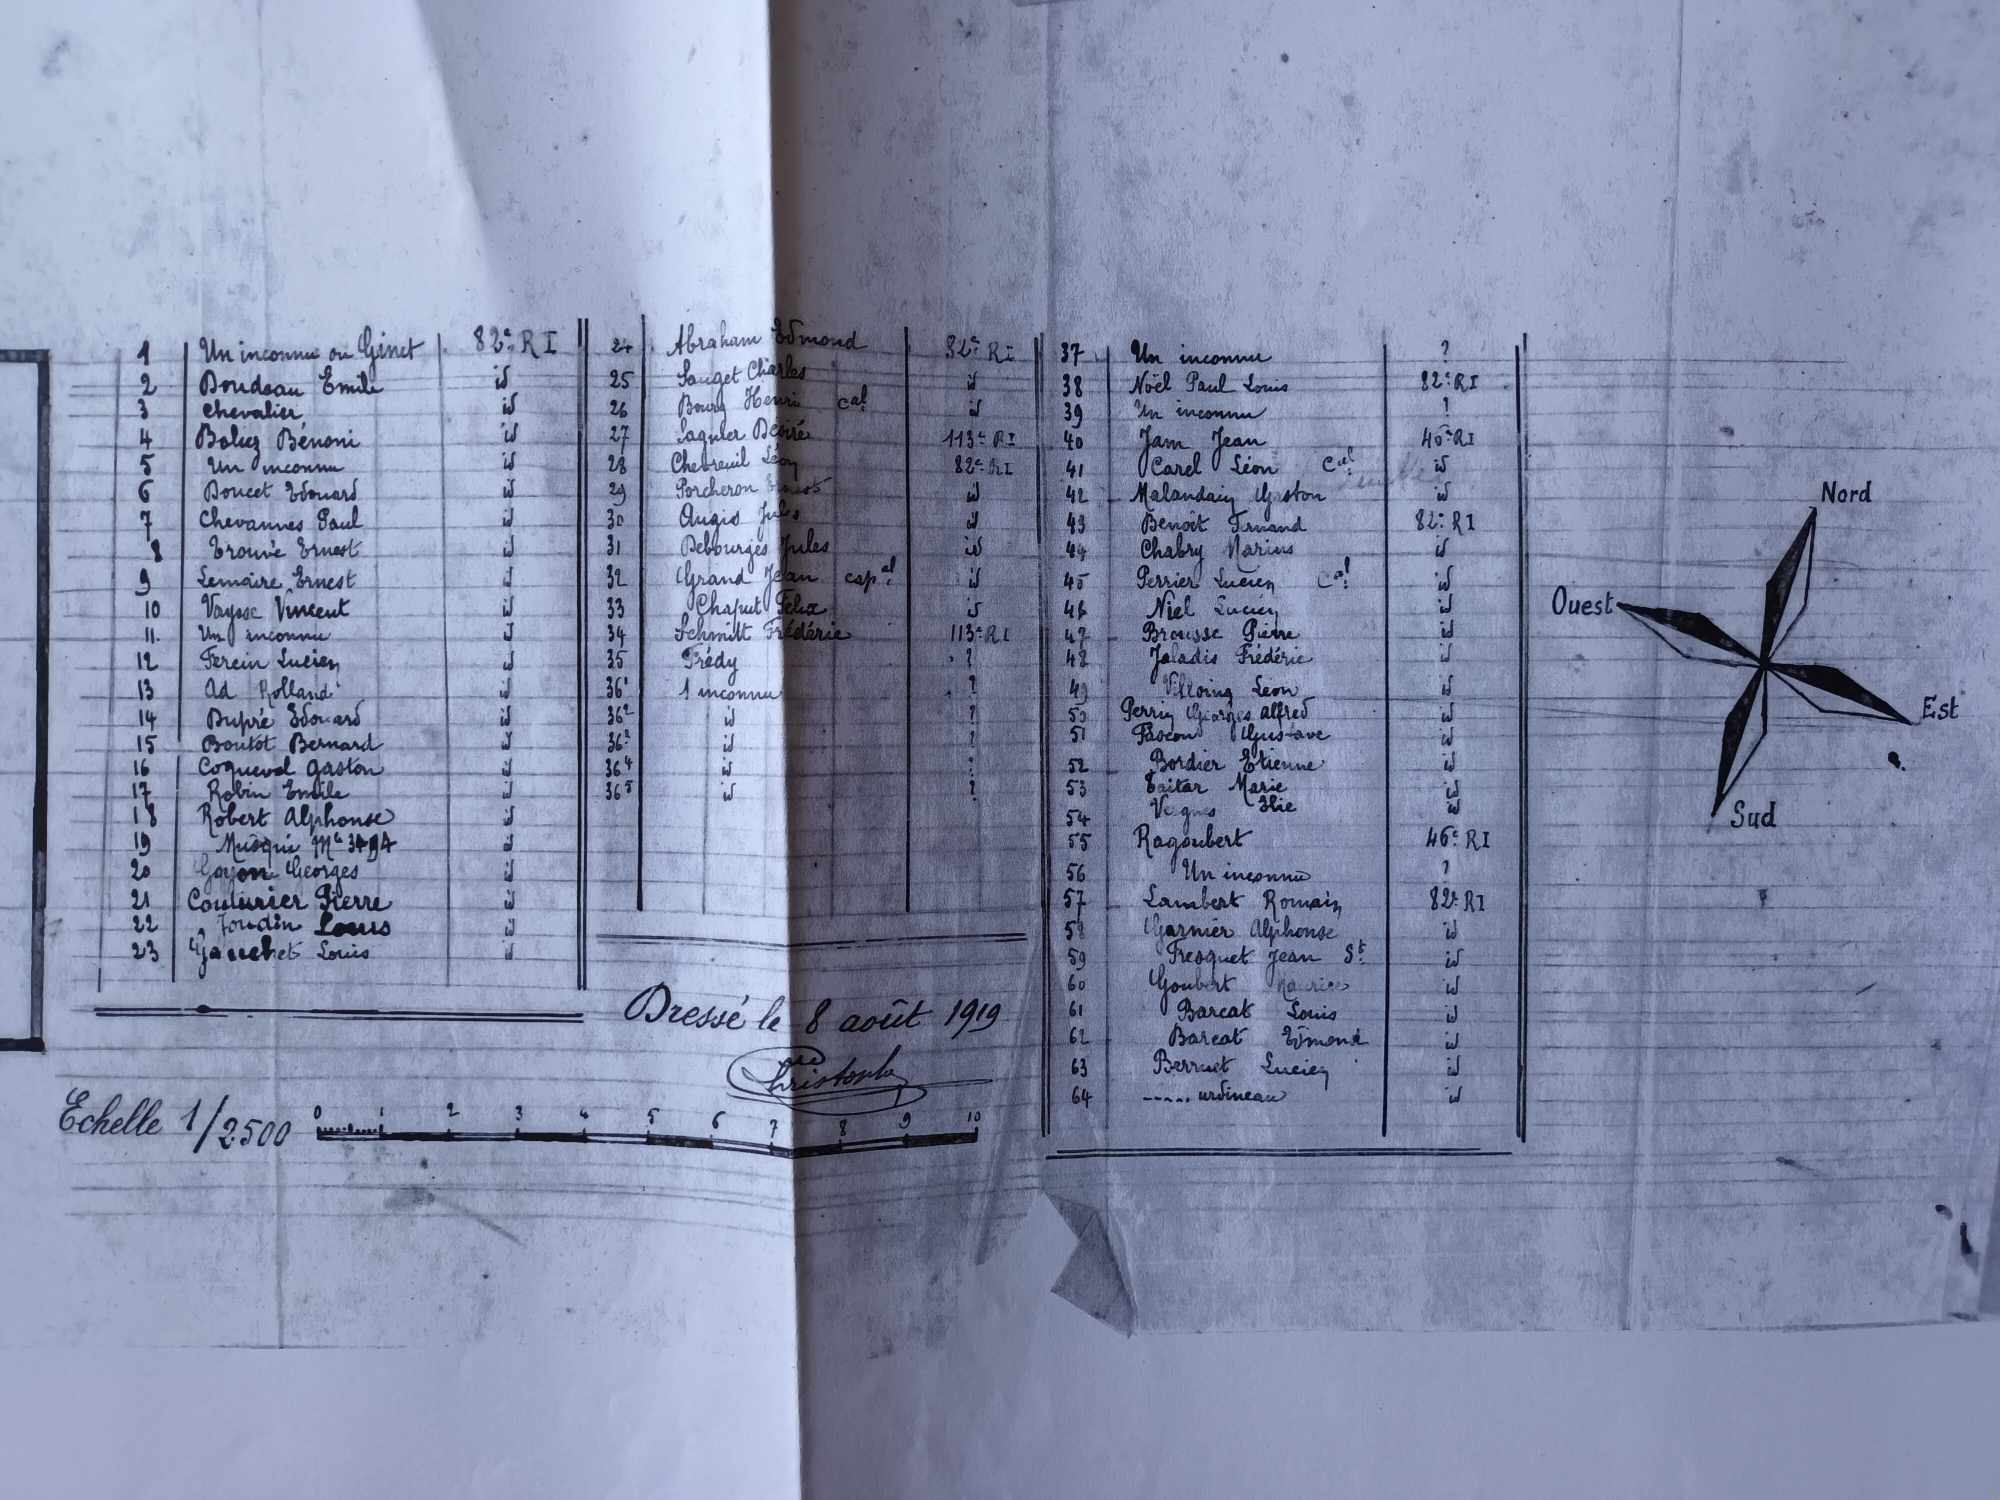 1 Un inconnu ou Ginet 82e RI
2 Boudeau Emile id
3 Chevalier id
4 Boliez Bénoni id
5 Un inconnu id
6 Doucet Edouard id
7 Chevannes Paul id
8 Trouvé Ernest id
9 Lemaire Ernest id
10 Vaysse Vincent id
11. Un inconnu id
12 Ferein Lucien id
13 Ad Rolland id
14 Dupré Edouard id
15 Boutot Bernard id
16 Coquevel Gaston id
17 Robin Emile id
18 Robert Alphonse id
19 Musqui Mle id
20 Goyon Georges id
21 Couturier Pierre id
22 Joudin Louis id
23 Gauchet Louis id
24 Abraham Edmond 82e RI
25 Sauget Charles id
26 Bourg Henri cal id
27 Sagnier Désiré 113e RI
28 Chebreuil Léon 82e RI
29 Porcheron Ernest id
30 Augis Jules id
31 Debourges Jules id
32 Grand Jean capal id
33 Chaput Félix id
34 Schmitt Frédéric 113e RI
35 Frédy ?
36¹ 1 inconnu ?
36² id ?
36³ id ?
36⁴ id ?
36⁵ id ?
37 Un inconnu ?
38 Noël Paul Louis 82e RI
39 Un inconnu ?
40 Jam Jean 46e RI
41 Carel Léon Cal id
42 Malandain Gaston id
43 Benoît Fernand 82e RI
44 Chabry Marius id
45 Perrier Lucien Cal id
46 Niel Lucien id
47 Brousse Pierre id
48 Jaladis Frédéric id
49 Villoing Léon id
50 Perrin Georges Alfred id
51 Pascon Gustave id
52 Bordier Etienne id
53 Taitar Marie id
54 Vergnes Elie id
55 Ragoubert 46e RI
56 Un inconnu ?
57 Lambert Romain 82e RI
58 Garnier Alphonse id
59 Fresquet Jean St id
60 Goubert Maurice id
61 Barcat Louis id
62 Barcat Edmond id
63 Berruet Lucien id
64 ----- urdineau id
Dressé le 8 août 1919
Christophe
Echelle 1/2500
0 1 2 3 4 5 6 7 8 9 10
Nord
Ouest
Est
Sud